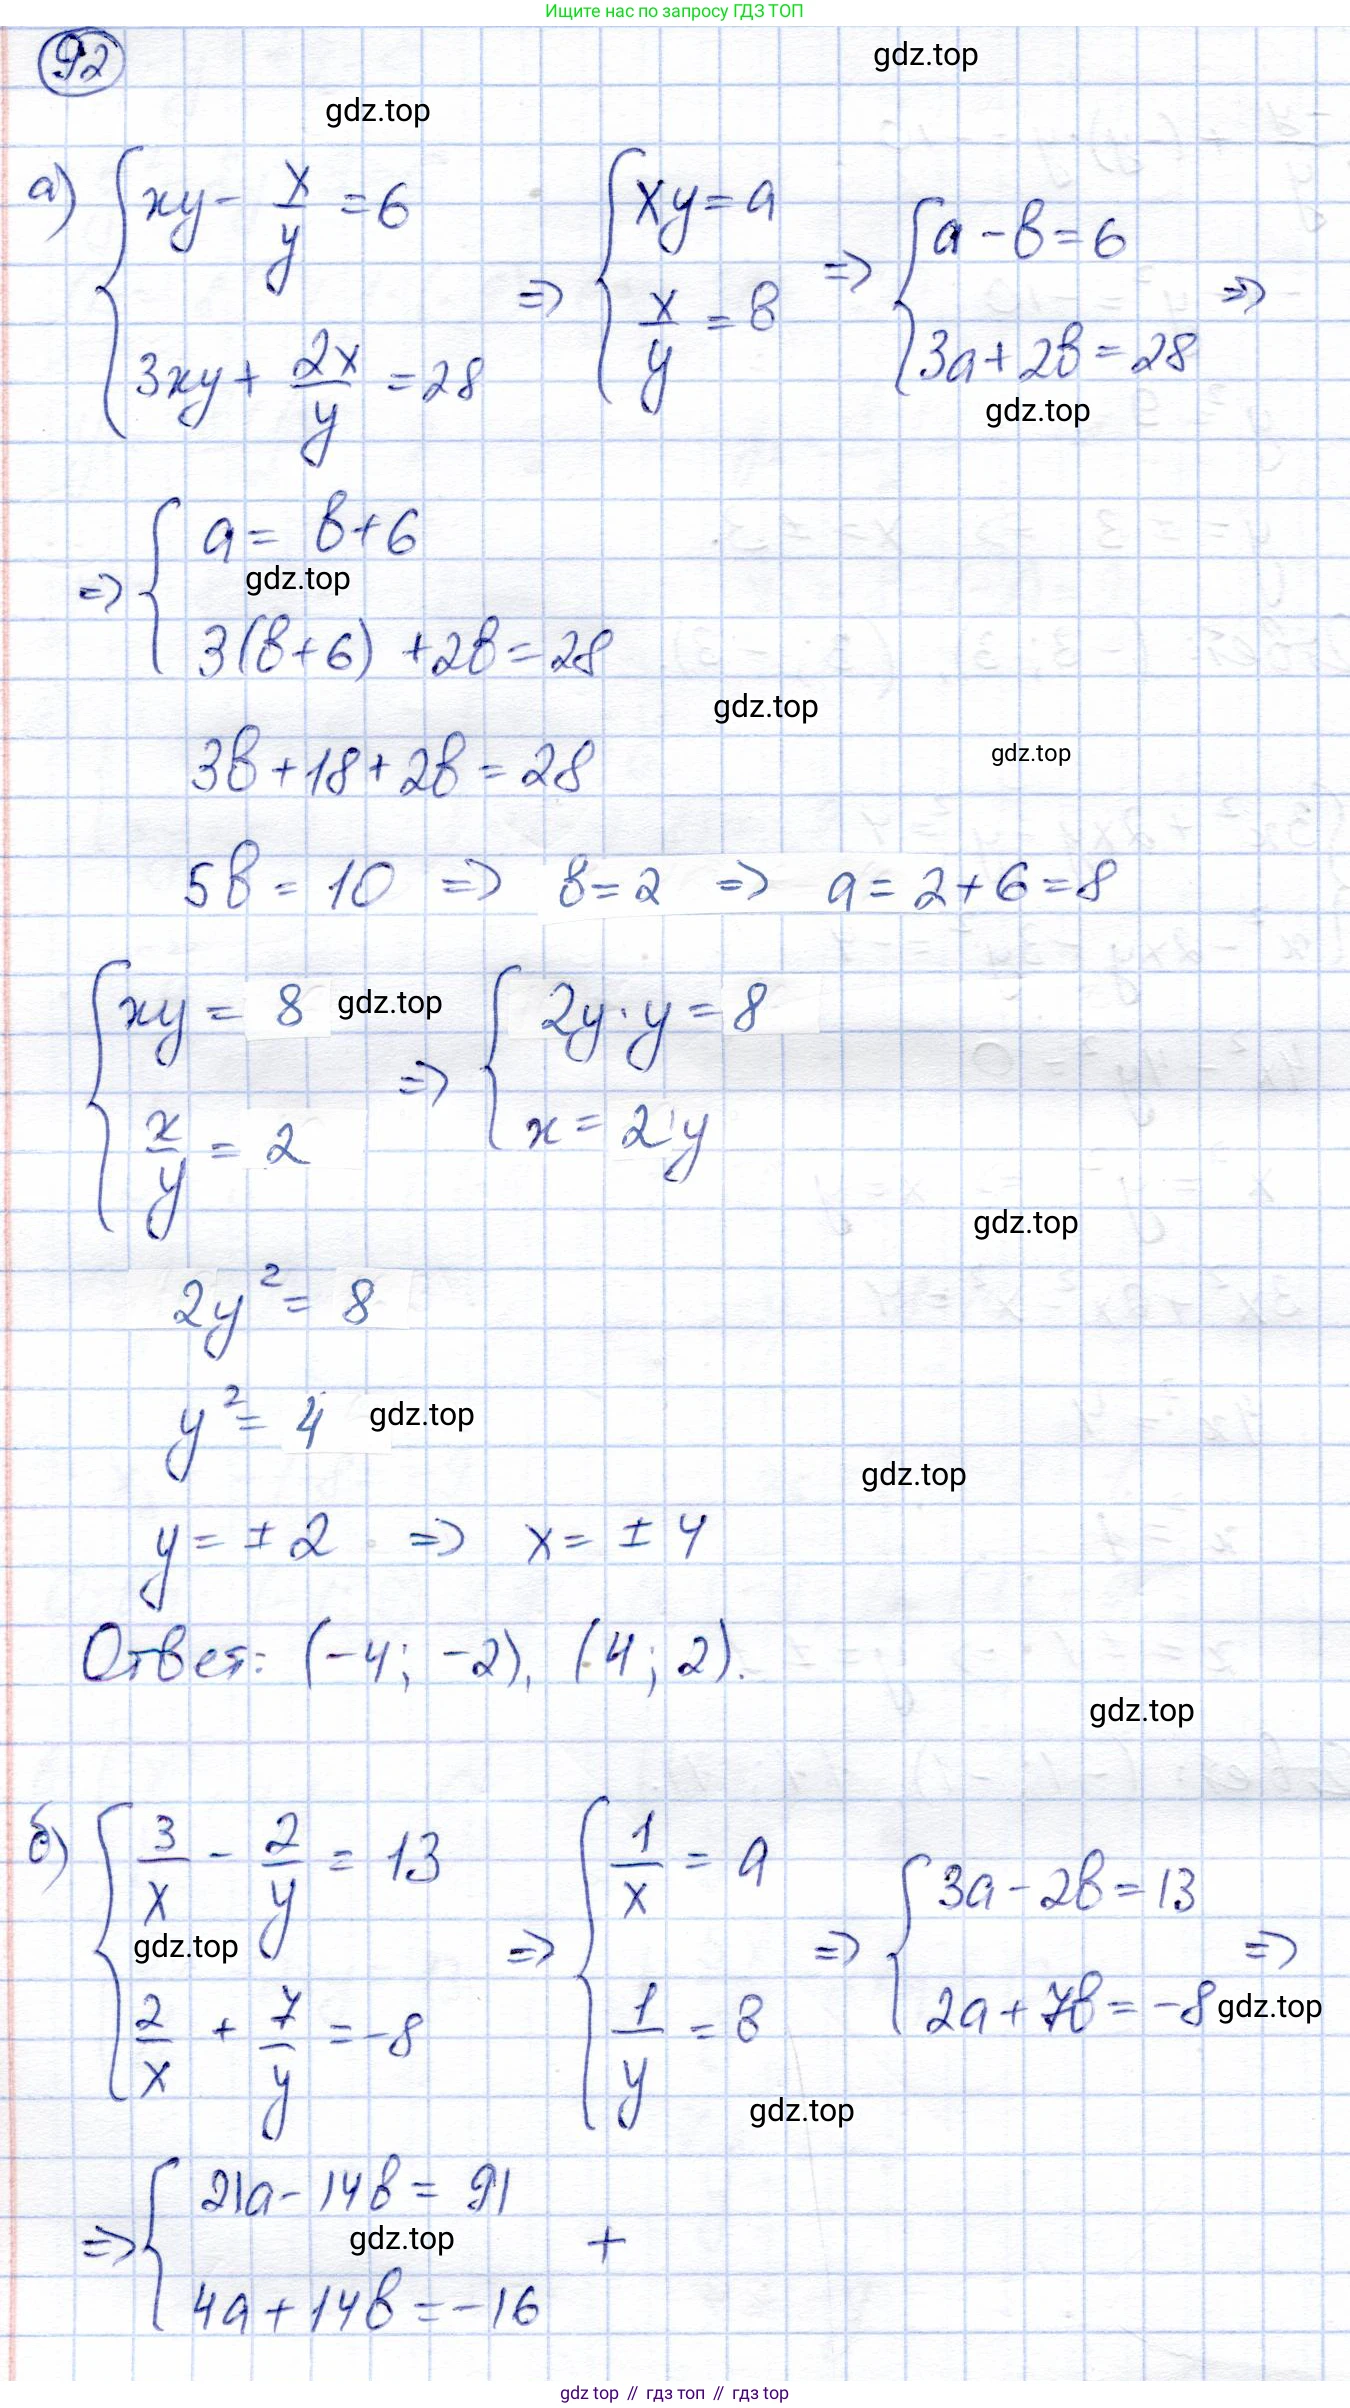 Ищите нас по запросу ГДЗ ТОП
92
gdz.top
gdz.top
а) { xy - x/y = 6 ; 3xy + 2x/y = 28 => { xy = a ; x/y = в => { a - в = 6 ; 3a + 2в = 28 =>
gdz.top
=> { a = в + 6
gdz.top
3(в+6) + 2в = 28
gdz.top
3в + 18 + 2в = 28
gdz.top
5в = 10 => в = 2 => a = 2 + 6 = 8
{ xy = 8 ; x/y = 2 => { 2y · y = 8 ; x = 2y
gdz.top
gdz.top
2y² = 8
y² = 4
gdz.top
gdz.top
y = ± 2 => x = ± 4
Ответ: (-4; -2), (4; 2).
gdz.top
б) { 3/x - 2/y = 13 ; 2/x + 7/y = -8 => { 1/x = a ; 1/y = в => { 3a - 2в = 13 ; 2a + 7в = -8 =>
gdz.top
gdz.top
gdz.top
=> { 21a - 14в = 91
gdz.top
+
4a + 14в = -16
gdz top // гдз топ // гдз top